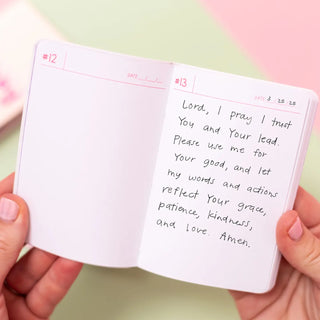 #12
DATE
#13
DATE
Lord, I pray I trust
You and Your lead.
Please use me for
Your good, and let
my words and actions
reflect Your grace,
patience, kindness,
and love. Amen.